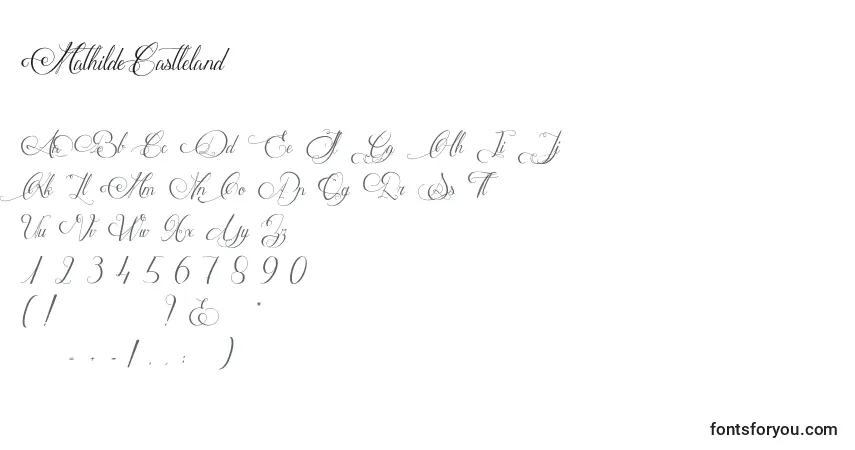 MathildeCastleland
Aa Bb Cc Dd Ee Ff Gg Hh Ii Jj
Kk Ll Mm Nn Oo Pp Qq Rr Ss Tt
Uu Vv Ww Xx Yy Zz
1 2 3 4 5 6 7 8 9 0
( ! ? & *
= + - / . , : )
fontsforyou.com